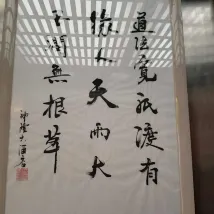 道法寬祇渡有
緣人天雨大
不潤無根草